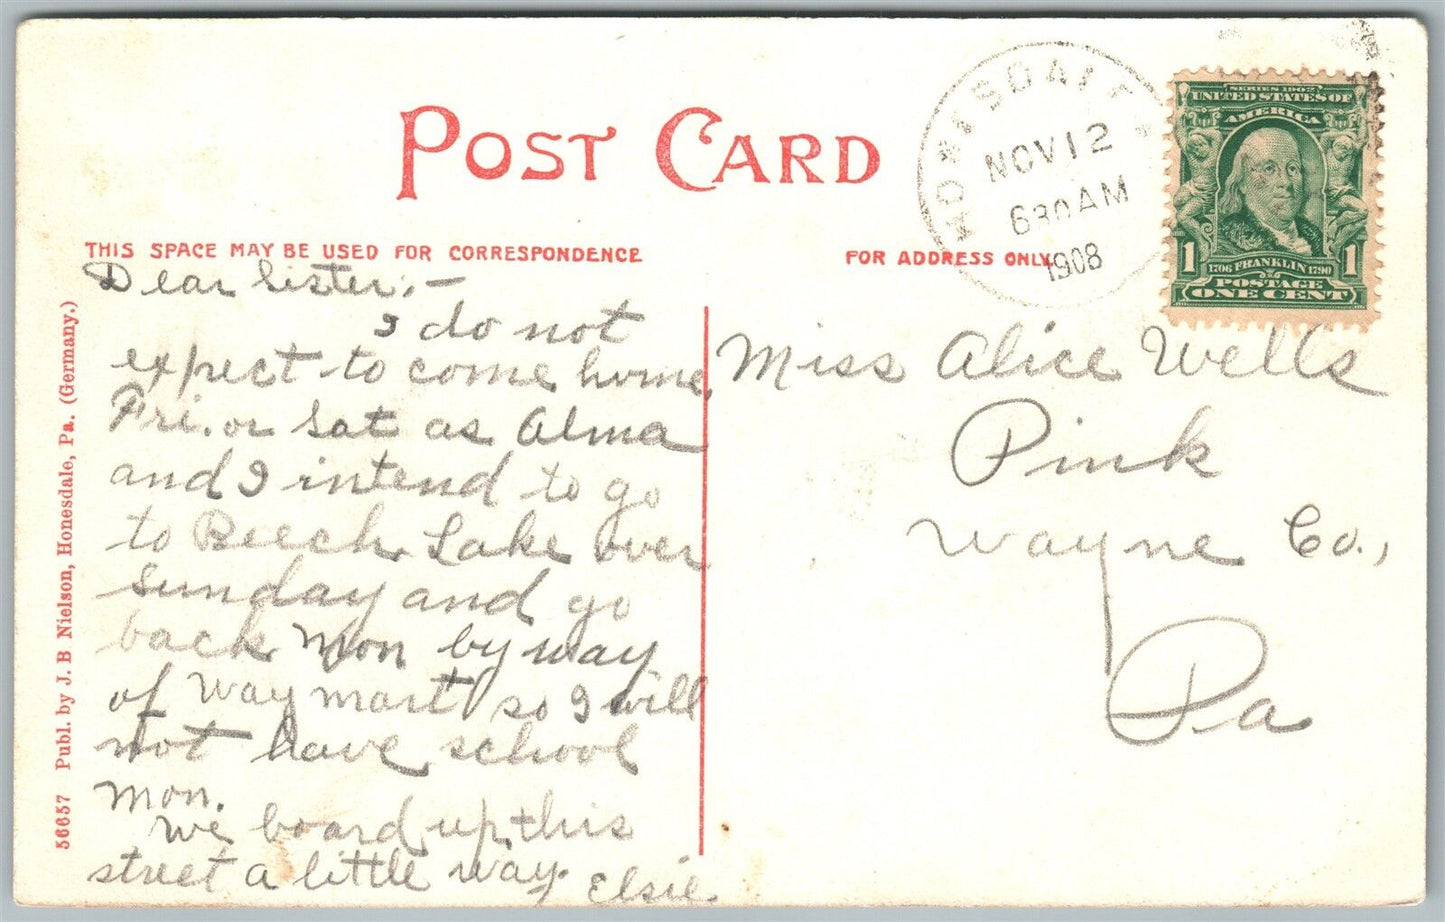 POST CARD
THIS SPACE MAY BE USED FOR CORRESPONDENCE
FOR ADDRESS ONLY.
HONESDALE
NOV 12
630 AM
1908
SERIES 1902
UNITED STATES OF
AMERICA
1 1
1706 FRANKLIN 1790
POSTAGE
ONE CENT
56657 Publ. by J. B Nielson, Honesdale, Pa. (Germany.)
Dear Sister:—
I do not
expect to come home
Fri. or Sat as Alma
and I intend to go
to Beech Lake over
Sunday and go
back Mon by way
of Waymart so I will
not have school
Mon.
We board up this
street a little way.
Elsie.
Miss Alice Wells
Pink
Wayne Co.,
Pa